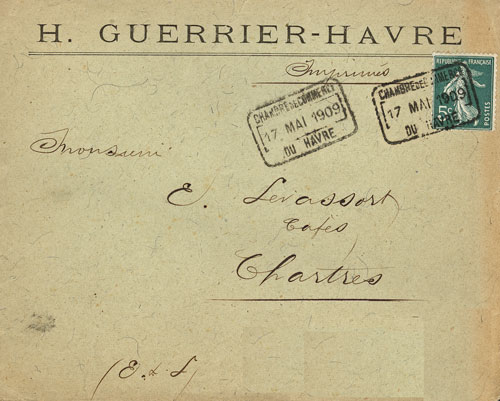 H. GUERRIER-HAVRE
Imprimés
RÉPUBLIQUE FRANÇAISE
5c
POSTES
CHAMBRE DE COMMERCE
17 MAI 1909
DU HAVRE
CHAMBRE DE COMMERCE
17 MAI 1909
DU HAVRE
Monsieur
E. Levassort
Cafés
Chartres
(E. & L)